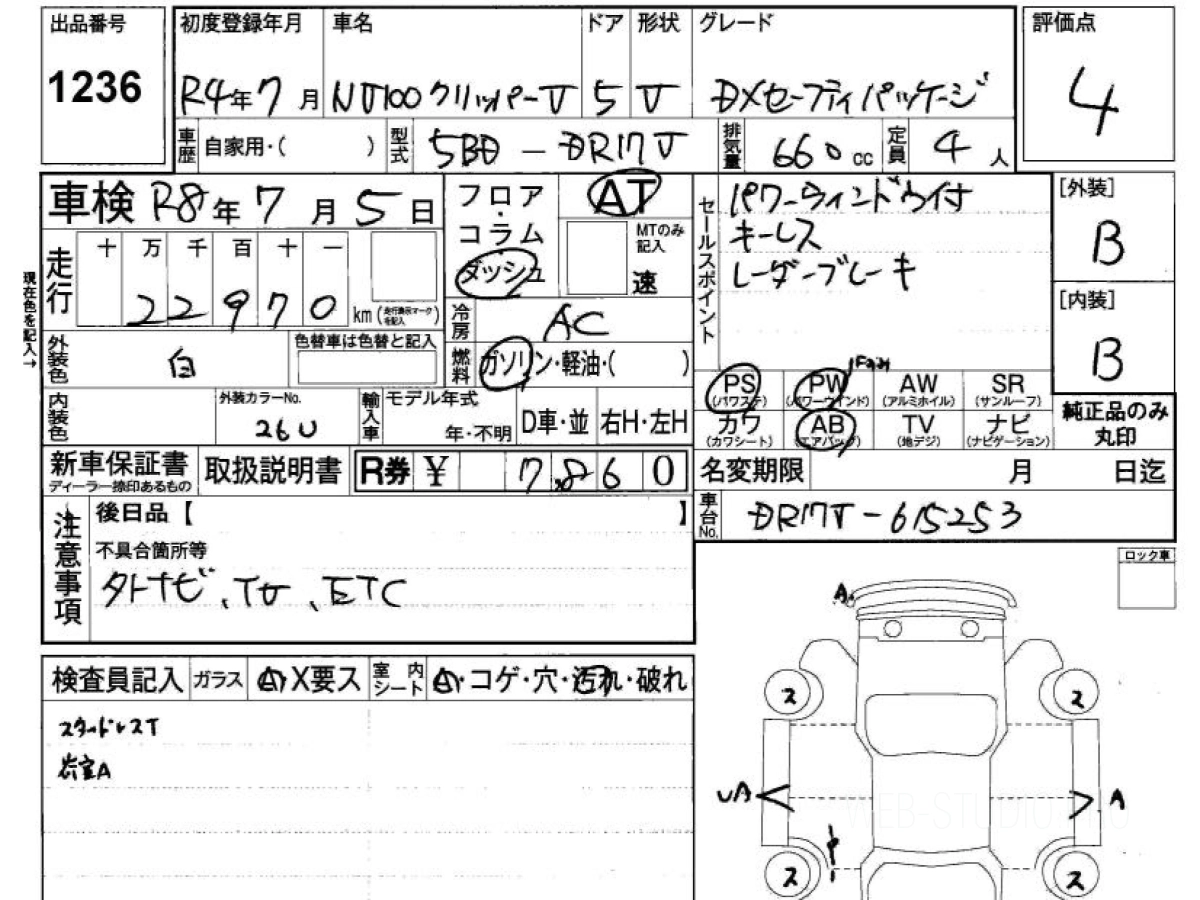 出品番号
1236
初度登録年月 車名 ドア 形状 グレード
R4年7月 NV100クリッパーV 5 V DXセーフティパッケージ
評価点
4
車歴 自家用・( ) 型式 5BD-DR17V 排気量 660cc 定員 4人
車検 R8年7月5日
フロア・コラム
ダッシュ
AT
MTのみ記入
速
セールスポイント
パワーウィンドウ付
キーレス
レーダーブレーキ
[外装]
B
[内装]
B
現在色を記入→
走行 十 万 千 百 十 一
22970 km (走行表示マークを記入)
冷房 AC
燃料 ガソリン・軽油・( )
外装色 白 色替車は色替と記入
内装色 外装カラーNo. 26U
輸入車 モデル年式 年・不明 D車・並 右H・左H
PS (パワステ) PW (パワーウインド) AW (アルミホイル) SR (サンルーフ)
カワ (カワシート) AB (エアバッグ) TV (地デジ) ナビ (ナビゲーション)
純正品のみ丸印
新車保証書 ディーラー捺印あるもの 取扱説明書 R券 ¥ 7,860
名変期限 月 日迄
車台No. DR17V-615253
注意事項
後日品【 】
不具合箇所等
外ナビ、TV、ETC
ロック車
検査員記入 ガラス A・X要ス 室内シート A・コゲ・穴・汚れ・破れ
スタッドレスT
荷室A
A
ス ス
UA A
ス ス
WEB-STUDIO.PRO